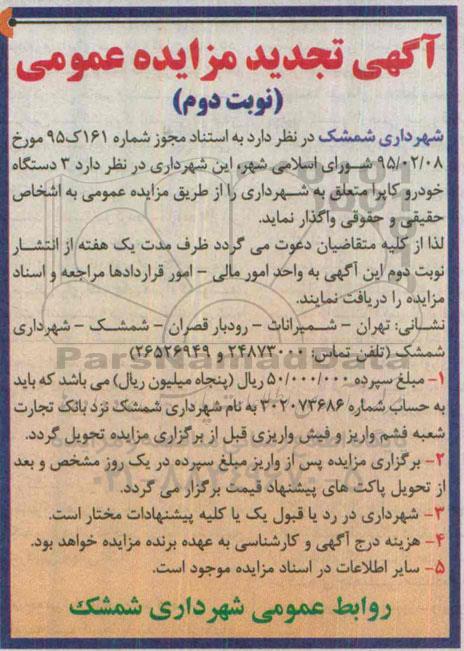 آگهی تجدید مزایده عمومی
(نوبت دوم)
شهرداری شمشک در نظر دارد به استناد مجوز شماره ۱۶۱ک۹۵ مورخ
۹۵/۰۲/۰۸ شورای اسلامی شهر، این شهرداری در نظر دارد ۳ دستگاه
خودرو کاپرا متعلق به شهرداری را از طریق مزایده عمومی به اشخاص
حقیقی و حقوقی واگذار نماید.
لذا از کلیه متقاضیان دعوت می گردد ظرف مدت یک هفته از انتشار
نوبت دوم این آگهی به واحد امور مالی – امور قراردادها مراجعه و اسناد
مزایده را دریافت نمایند.
نشانی: تهران – شمیرانات – رودبار قصران – شمشک – شهرداری
شمشک (تلفن تماس: ۲۴۸۷۳۰۰۰ و ۲۶۵۲۶۹۴۹)
۱– مبلغ سپرده ۵۰/۰۰۰/۰۰۰ ریال (پنجاه میلیون ریال) می باشد که باید
به حساب شماره ۳۰۲۰۷۳۶۸۶ به نام شهرداری شمشک نزد بانک تجارت
شعبه فشم واریز و فیش واریزی قبل از برگزاری مزایده تحویل گردد.
۲– برگزاری مزایده پس از واریز مبلغ سپرده در یک روز مشخص و بعد
از تحویل پاکت های پیشنهاد قیمت برگزار می گردد.
۳– شهرداری در رد یا قبول یک یا کلیه پیشنهادات مختار است.
۴– هزینه درج آگهی و کارشناسی به عهده برنده مزایده خواهد بود.
۵– سایر اطلاعات در اسناد مزایده موجود است.
روابط عمومی شهرداری شمشک
ParsNamadData